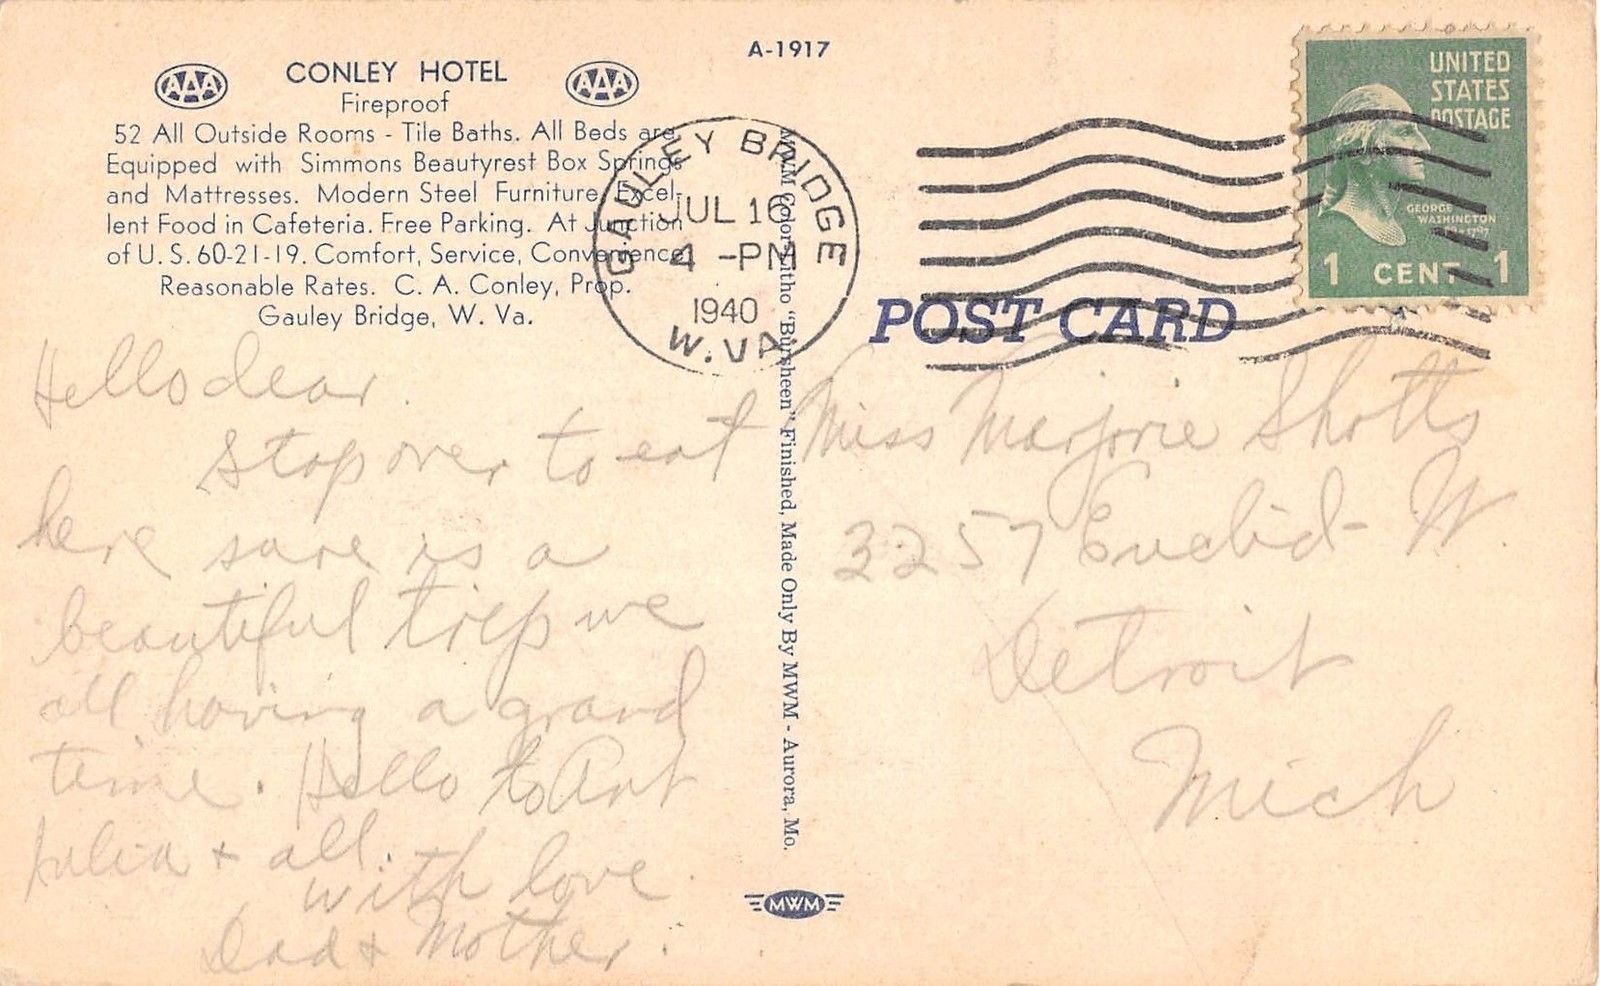 A-1917
AAA CONLEY HOTEL AAA
Fireproof
52 All Outside Rooms - Tile Baths. All Beds are
Equipped with Simmons Beautyrest Box Springs
and Mattresses. Modern Steel Furniture, Excel-
lent Food in Cafeteria. Free Parking. At Junction
of U. S. 60-21-19. Comfort, Service, Convenience
Reasonable Rates. C. A. Conley, Prop.
Gauley Bridge, W. Va.
GAULEY BRIDGE
JUL 16
4 -PM
1940
W. VA.
UNITED
STATES
POSTAGE
GEORGE
WASHINGTON
1 CENT 1
POST CARD
Hello dear.
Stop over to eat
here sure is a
beautiful trip we
all having a grand
time. Hello to Art
Julia + all.
with love
Dad + Mother.
MWM Color-Litho "Bursheen" Finished, Made Only By MWM - Aurora, Mo.
MWM
Miss Marjorie Shotts
3257 Euclid - W.
Detroit
Mich